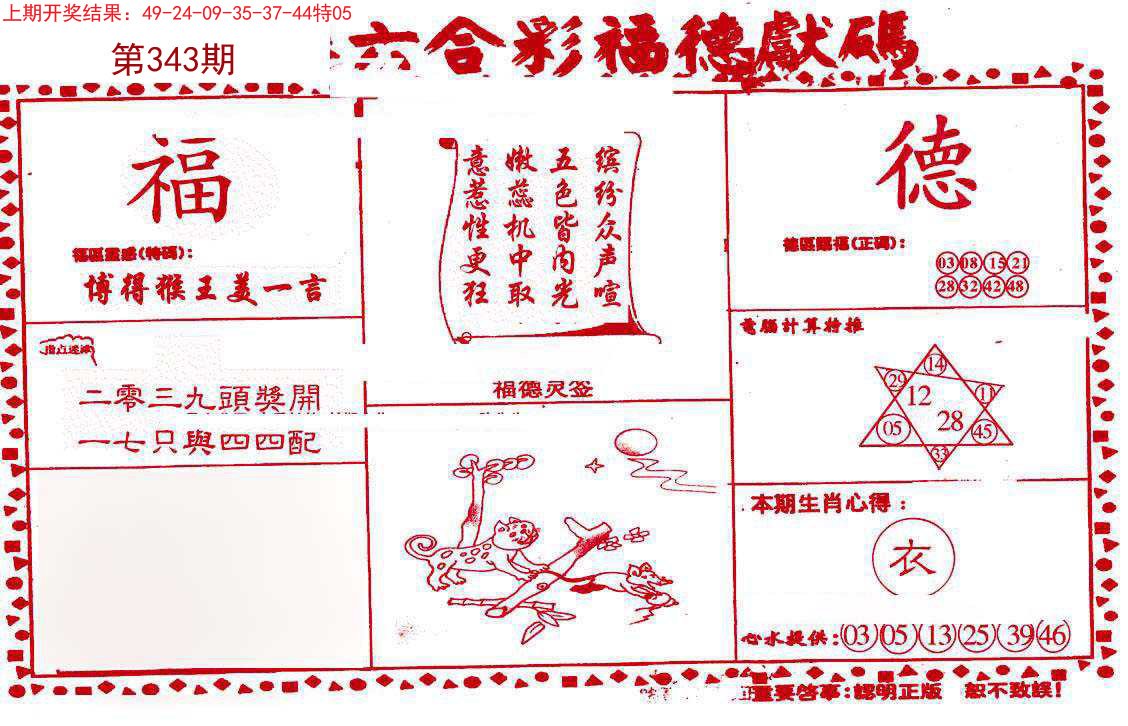 上期开奖结果：49-24-09-35-37-44特05
第343期
六合彩福德獻碼
福
福區靈感(特碼)：
博得猴王美一言
指点迷津
二零三九頭獎開
一七只與四四配
缤纷众声喧
五色皆内光
嫩蕊机中取
意惹性更狂
福德灵签
德
德區賜福(正碼)：
03 08 15 21
28 32 42 48
電腦計算特推
14
29 12 11
05 28 45
33
本期生肖心得：
衣
心水提供：03 05 13 25 39 46
重要啓事：認明正版 恕不致誤！